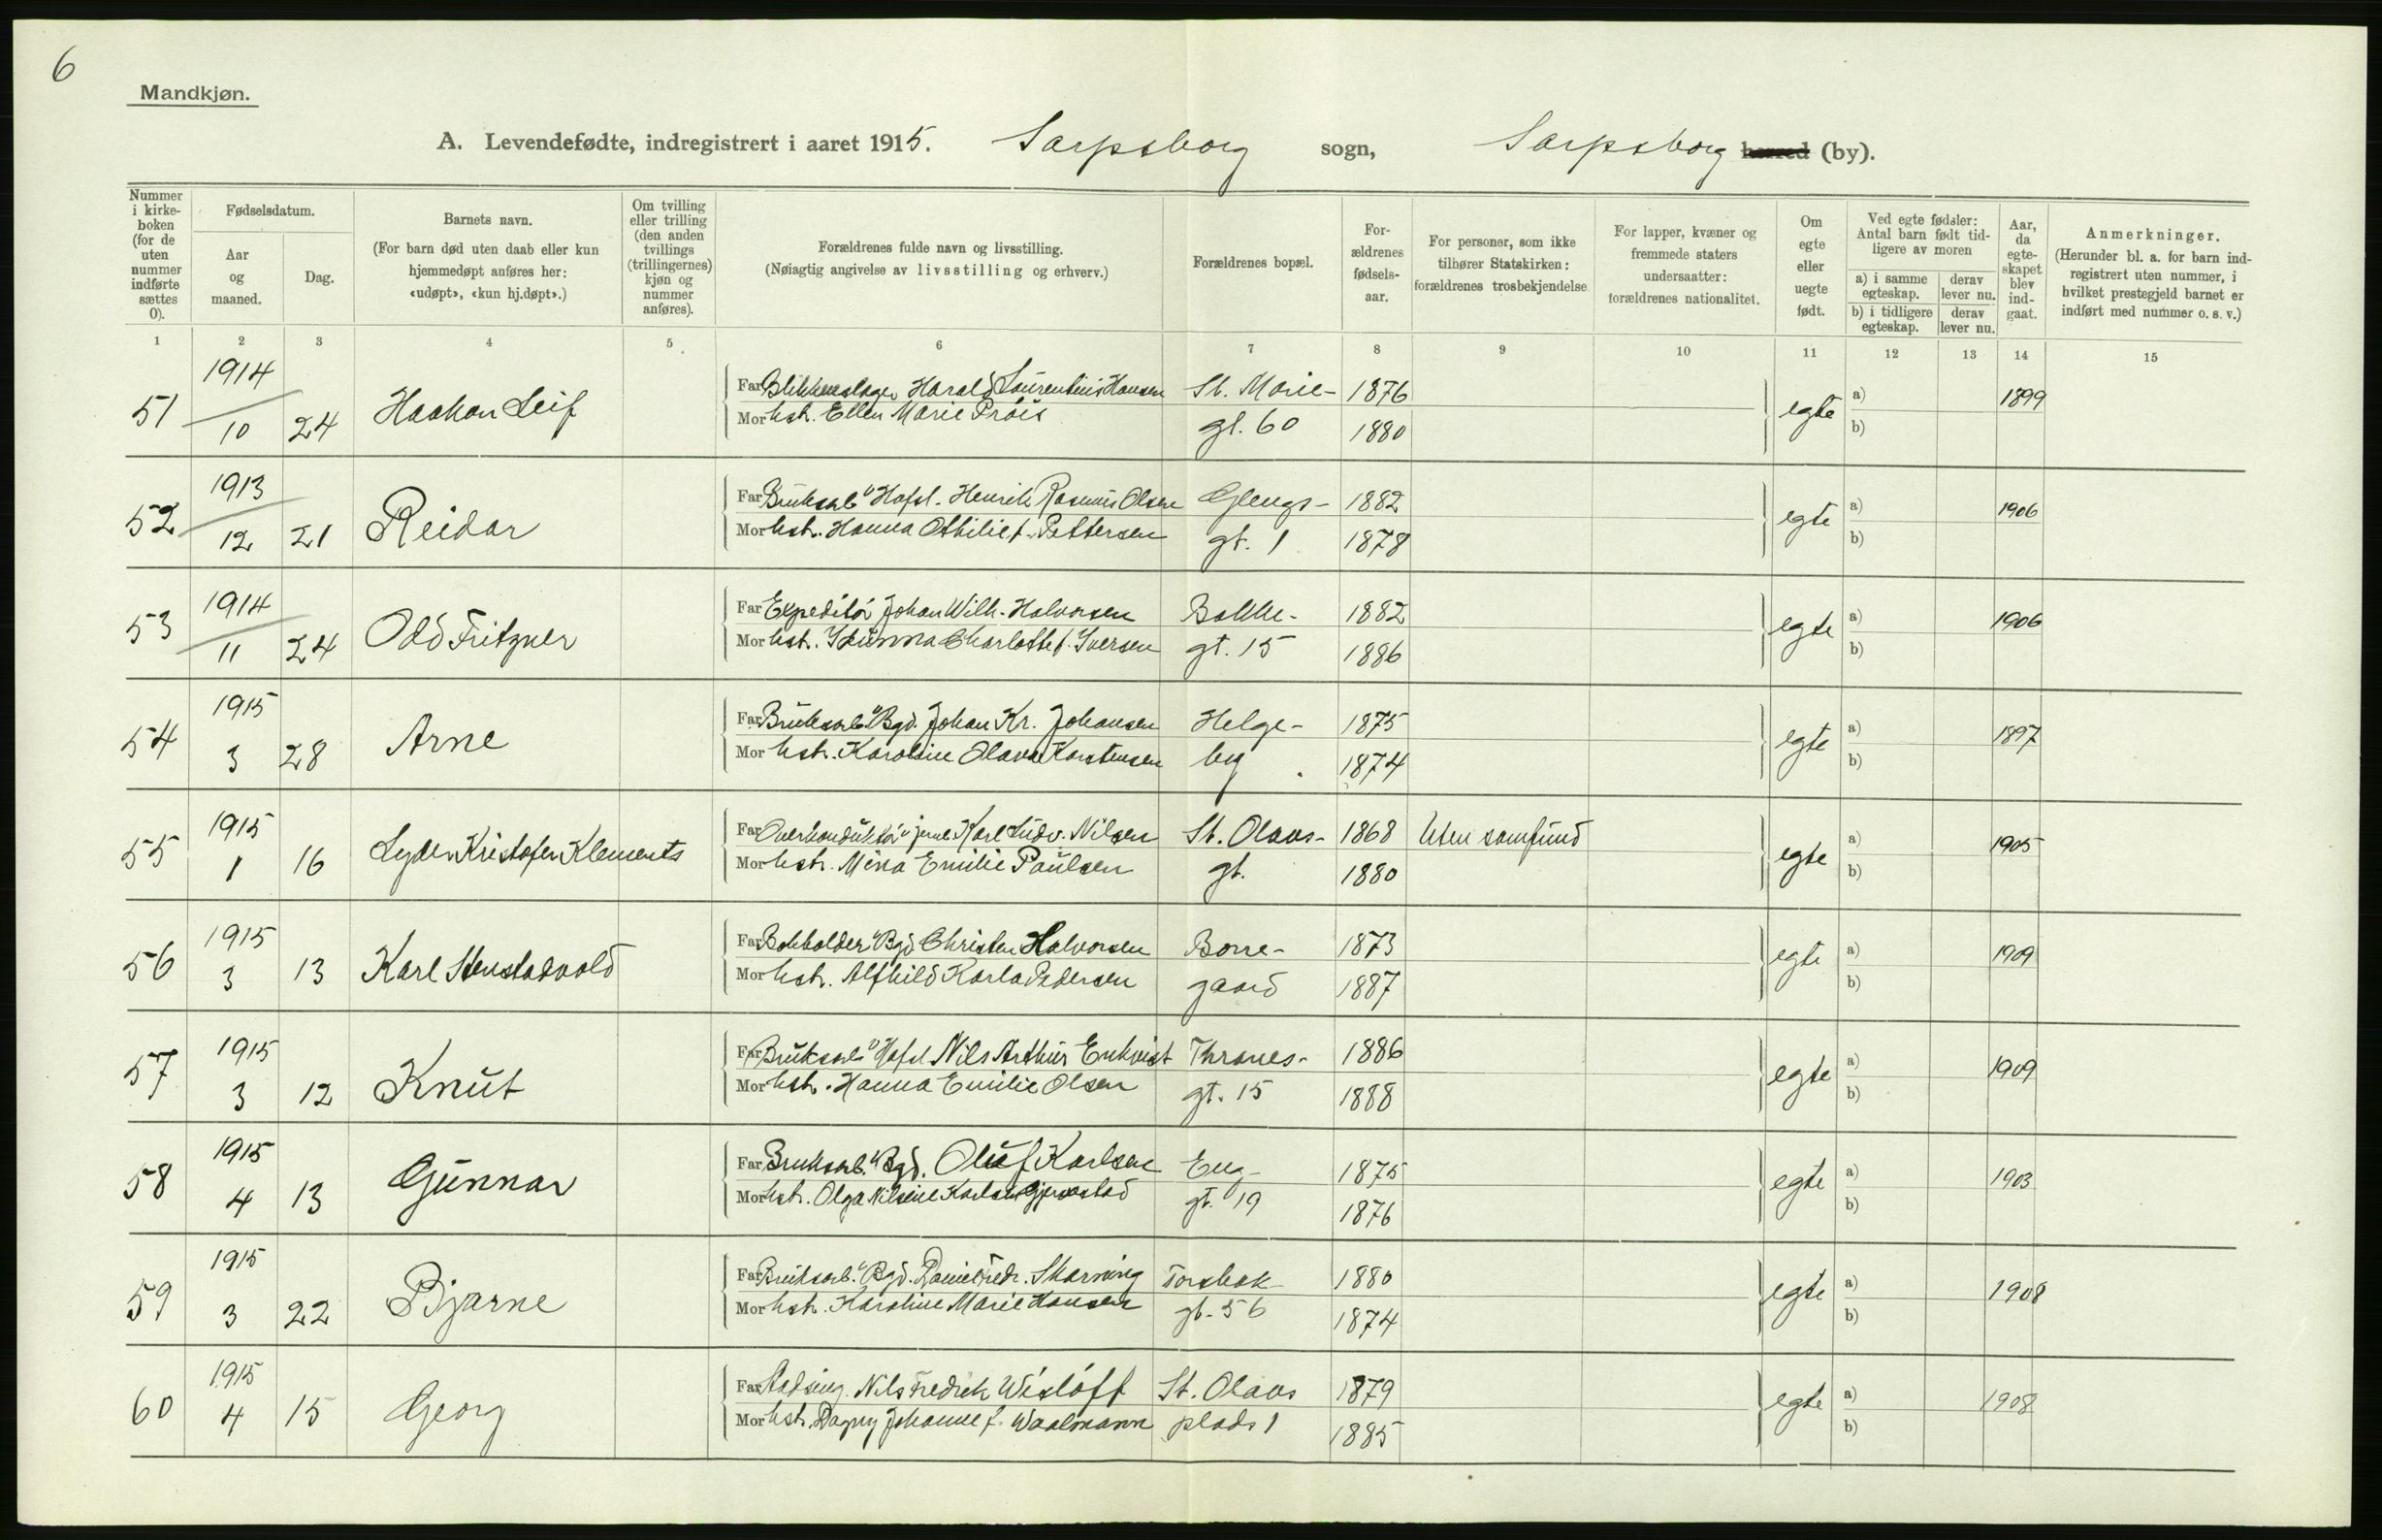 6
Mandkjøn.
A. Levendefødte, indregistrert i aaret 1915. Sarpsborg sogn, Sarpsborg herred (by).
Nummer i kirke-boken (for de uten nummer indførte sættes 0).
Fødselsdatum.
Aar og maaned.
Dag.
Barnets navn.
(For barn død uten daab eller kun hjemmedøpt anføres her: «udøpt», «kun hj.døpt».)
Om tvilling eller trilling (den anden tvillings (trillingernes) kjøn og nummer anføres).
Forældrenes fulde navn og livsstilling.
(Nøiagtig angivelse av livsstilling og erhverv.)
Forældrenes bopæl.
For-ældrenes fødsels-aar.
For personer, som ikke tilhører Statskirken: forældrenes trosbekjendelse
For lapper, kvæner og fremmede staters undersaatter: forældrenes nationalitet.
Om egte eller uegte født.
Ved egte fødsler: Antal barn født tid-ligere av moren
a) i samme egteskap.
derav lever nu.
b) i tidligere egteskap.
derav lever nu.
Aar, da egte-skapet blev ind-gaat.
Anmerkninger.
(Herunder bl. a. for barn ind-registrert uten nummer, i hvilket prestegjeld barnet er indført med nummer o. s. v.)
1 2 3 4 5 6 7 8 9 10 11 12 13 14 15
51 1914 10 24 Haakon Leif
Far Blikkenslager Harald Laurentius Hansen St. Marie- 1876 egte a) 1899
Mor hstr. Ellen Marie Prøis gt. 60 1880 b)
52 1913 12 21 Reidar
Far Bruksarb. Hafsl. Henrik Rasmus Olsen Glengs- 1882 egte a) 1906
Mor hstr. Hanna Othilie f. Pettersen gt. 1 1878 b)
53 1914 11 24 Odd Fritzner
Far Expeditör Johan Wilh. Halvorsen Bakke- 1882 egte a) 1906
Mor hstr. Charlotte f. Iversen gt. 15 1886 b)
54 1915 3 28 Arne
Far Bruksarb. Bgd. Johan Kr. Johansen Helge- 1875 egte a) 1897
Mor hstr. Karoline Olava Karstensen by 1874 b)
55 1915 1 16 Lyder Kristofer Klements
Far Overkonduktör jernb. Karl Ludv. Nilsen St. Olavs- 1868 Uten samfund egte a) 1905
Mor hstr. Mina Emilie Paulsen gt. 1880 b)
56 1915 3 13 Karl Stenstadvold
Far Bokholder Bgd. Christen Halvorsen Borre- 1873 egte a) 1909
Mor hstr. Alfhild Karla Pedersen gaard 1887 b)
57 1915 3 12 Knut
Far Bruksarb. Hafsl. Nils Arthur Enkvist Thranes- 1886 egte a) 1909
Mor hstr. Hanna Emilie Olsen gt. 15 1888 b)
58 1915 4 13 Gunnar
Far Bruksarb. Bgd. Oluf Karlsen Eng- 1875 egte a) 1903
Mor hstr. Olga Nilsine gt. 19 1876 b)
59 1915 3 22 Bjarne
Far Bruksarb. Bgd. Daniel Fredr. Skarning Torsbek- 1880 egte a) 1908
Mor hstr. Karoline Marie Hansen gt. 56 1874 b)
60 1915 4 15 Georg
Far Nils Fredrik Wisløff St. Olavs 1879 egte a) 1908
Mor hstr. Dagny Johanne f. Waalmann plads 1 1885 b)